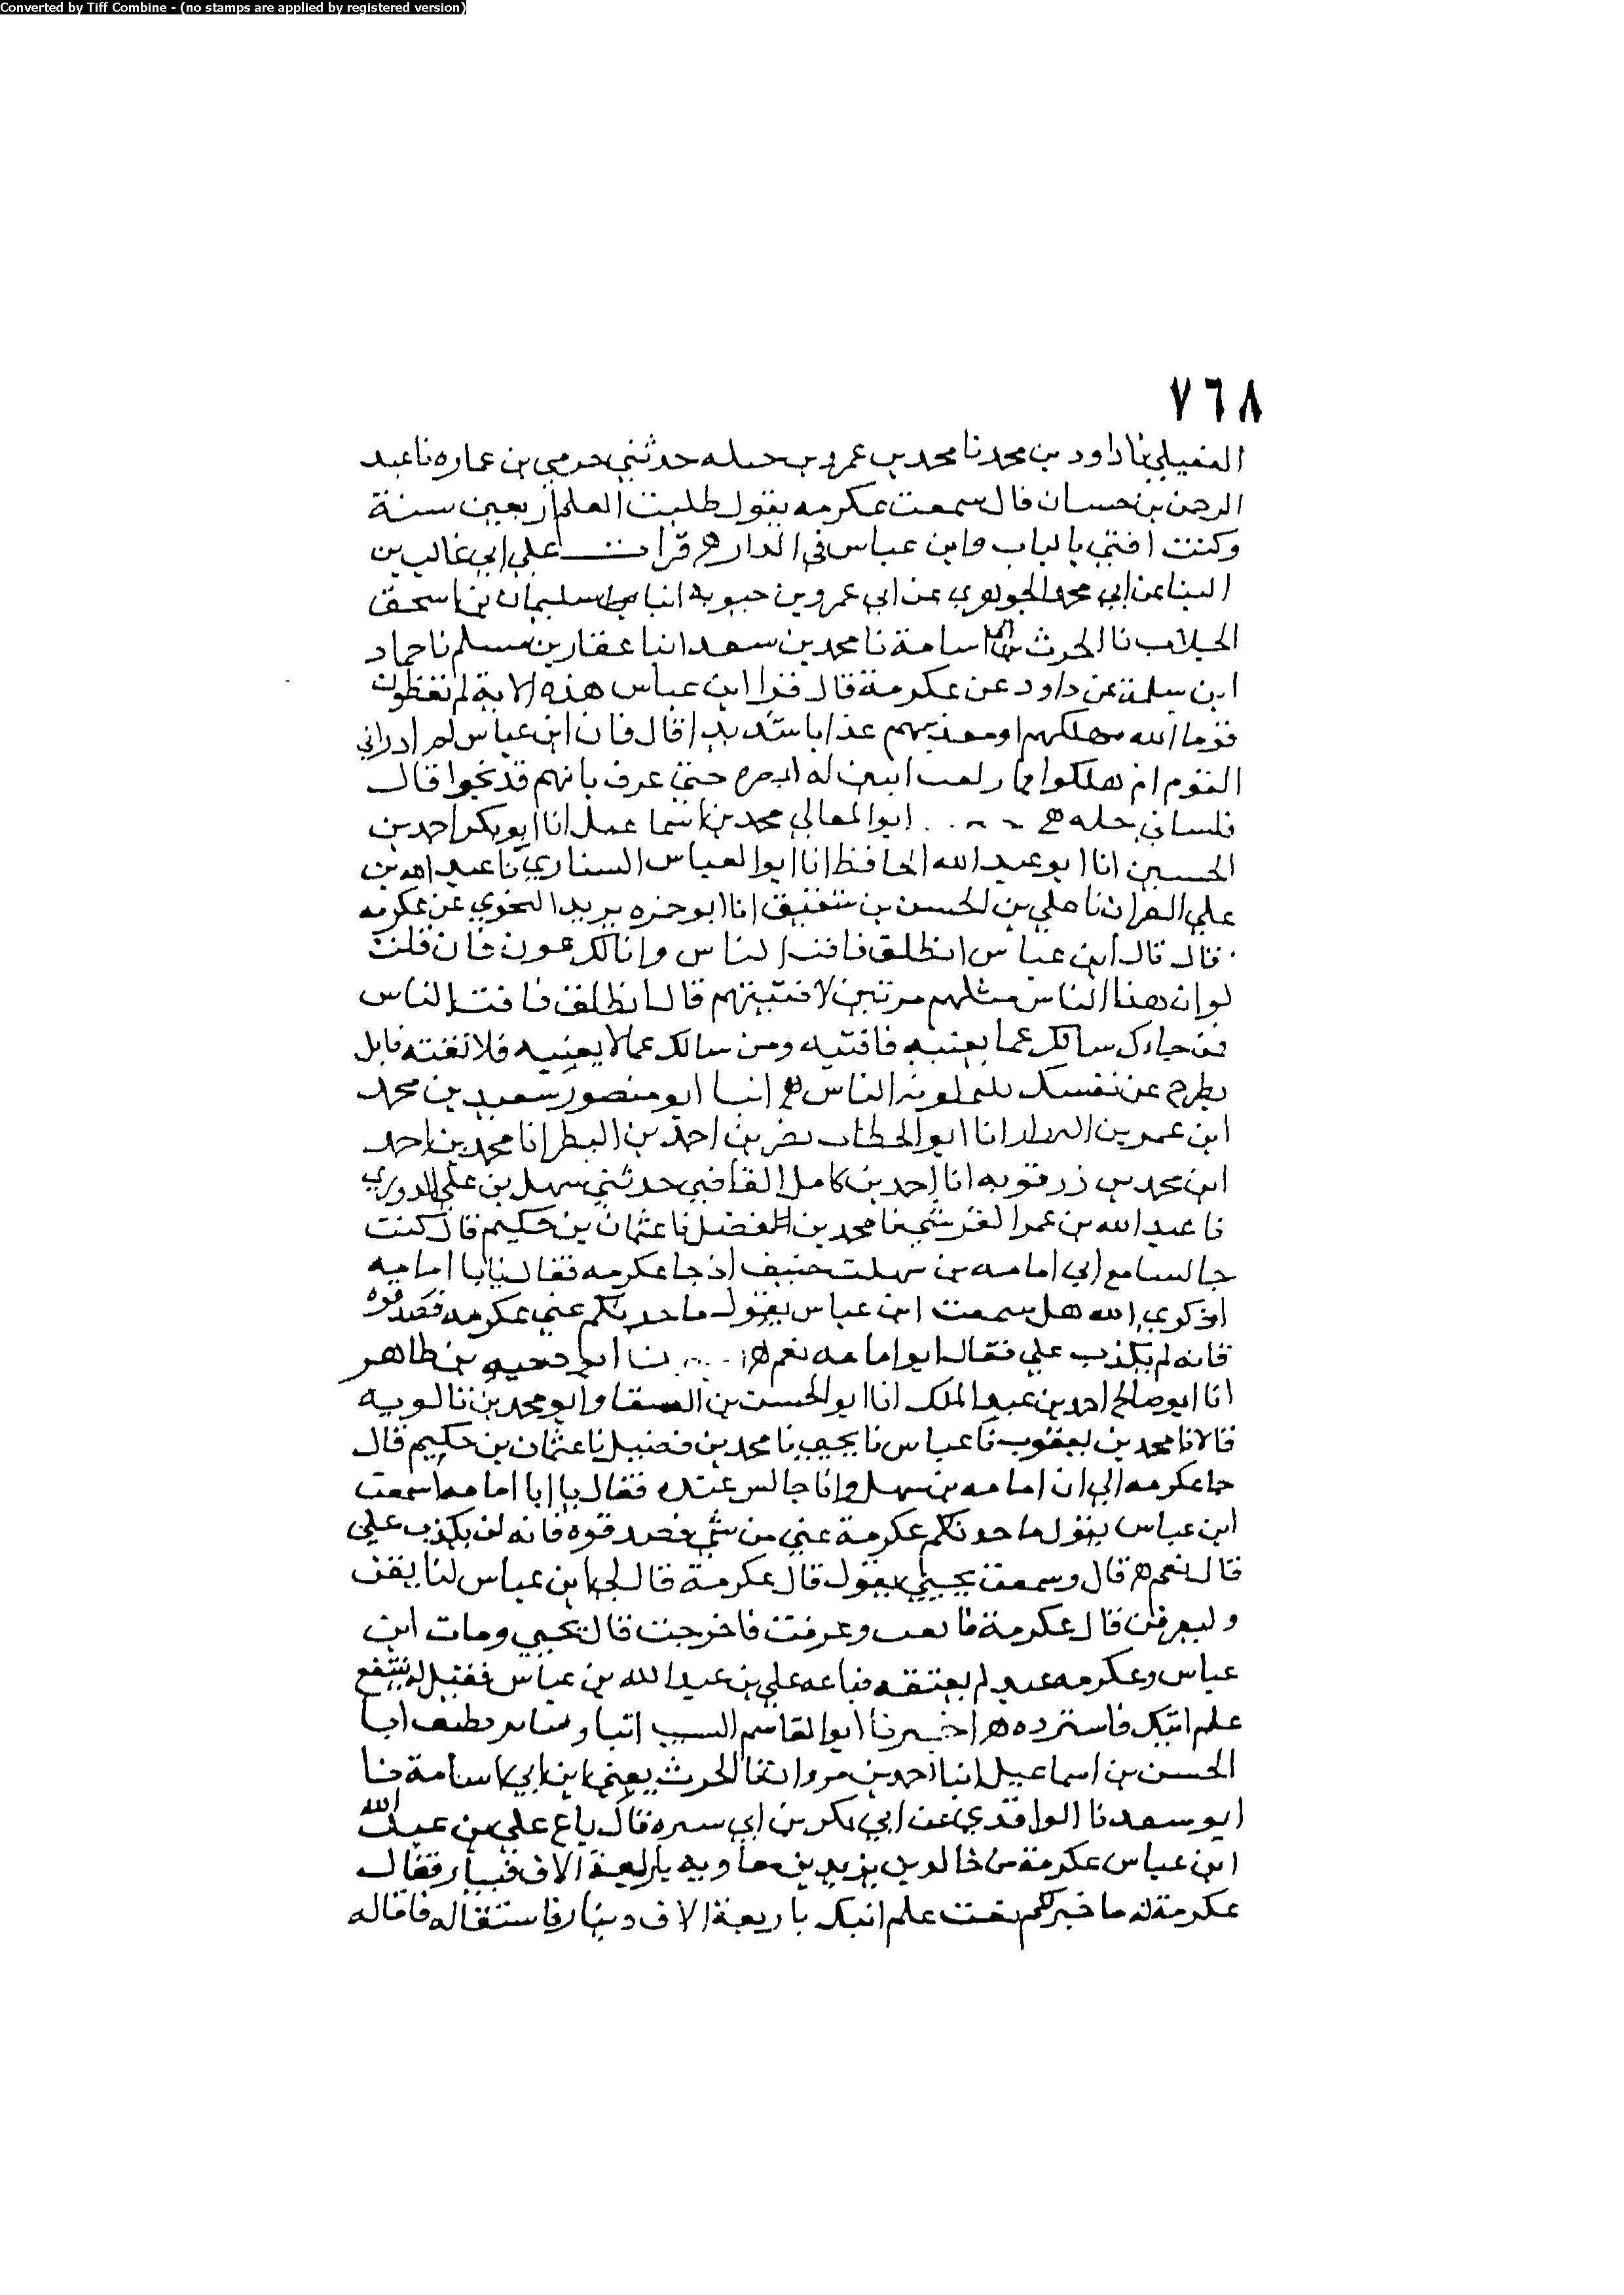 Converted by Tiff Combine - (no stamps are applied by registered version)
٧٦٨
العقيلي نا داود بن محمد نا محمد بن عمرو بن حبله حدثني حرمي بن عماره نا عبد
الرحمن بن حسان قال سمعت عكرمه يقول طلبت العلم اربعين سنة
وكنت افتي بالباب وابن عباس في الدار ه قرات علي ابي غالب بن
البنا عن ابي محمد الجوهري عن ابي عمرو بن حيويه انبا سليمان بن اسحق
الجلاب نا الحرث بن ابي اسامة نا محمد بن سعد انبا عفان بن مسلم نا حماد
ابن سلمة عن داود عن عكرمة قال قرا ابن عباس هذه الاية لم تعظون
قوما الله مهلكهم او معذبهم عذابا شديدا قال قال ابن عباس لم ادر اني
القوم ام هلكوا فما زلت ابين له ابصره حتي عرف بانهم قد نجوا قال
فلساني حله ه ابو المعالي محمد بن اسماعيل انا ابو بكر احمد بن
الحسين انا ابو عبد الله الحافظ انا ابو العباس السياري نا عبد الله بن
علي الغزال نا علي بن الحسن بن شقيق انا ابو حمزه يزيد النحوي عن عكرمه
قال قال ابن عباس انطلق فافت الناس وانا لك عون قال قلت
لو ان هذا الناس مثلهم مرتين لافتيتهم قال انطلق فافت الناس
فمن جاءك سالك عما يعنيه فافتيه ومن سالك عما لا يعنيه فلا تفته فانك
تطرح عن نفسك الناس ه انبا ابو منصور سعيد بن محمد
ابن عمر بن الرزاز انا ابو الخطاب نصر بن احمد بن البطر انا محمد بن احمد
ابن محمد بن زرقويه انا احمد بن كامل القاضي حدثني سهل بن علي الدوري
نا عبد الله بن عمر القرشي نا محمد بن الفضل نا عثمان بن حكيم قال كنت
جالسا مع ابي امامه بن سهل بن حنيف اذ جا عكرمه فقال يا ابا امامه
اذكري الله هل سمعت ابن عباس يقول ما حدثكم عني عكرمه فصدقوه
فانه لم يكذب علي فقال ابو امامه نعم ه نا ابو وجيه بن طاهر
انا ابو صالح احمد بن عبد الملك انا ابو الحسن بن السقا وابو محمد بن بالويه
قالا نا محمد بن يعقوب نا عباس نا يحيي نا محمد بن فضيل نا عثمان بن حكيم قال
جا عكرمه الي ابي امامه بن سهل وانا جالس عنده فقال يا ابا امامه اسمعت
ابن عباس يقول ما حدثكم عكرمة عني من شي فصدقوه فانه لن يكذب علي
قال نعم ه قال وسمعت يحيي يقول قال عكرمة قال لي ابن عباس
قال عكرمة وعرفت فاخرجت قال يحيي ومات ابن
عباس وعكرمه عبد لم يعتقه فباعه علي بن عبد الله بن عباس فقيل له تبيع
علم ابيك فاسترده ه اخبرنا ابو القاسم النسيب انبا رشا بن نظيف انبا
الحسن بن اسماعيل انبا احمد بن مروان نا الحرث يعني ابن ابي اسامة نا
ابو سعد نا الواقدي عن ابي بكر بن ابي سبره قال باع علي بن عبد الله
ابن عباس عكرمة من خالد بن يزيد بن معاويه باربعة الاف دينار فقال
عكرمة له ما خير لكم بعت علم ابيك باربعة الاف دينار فاستقاله فاقاله